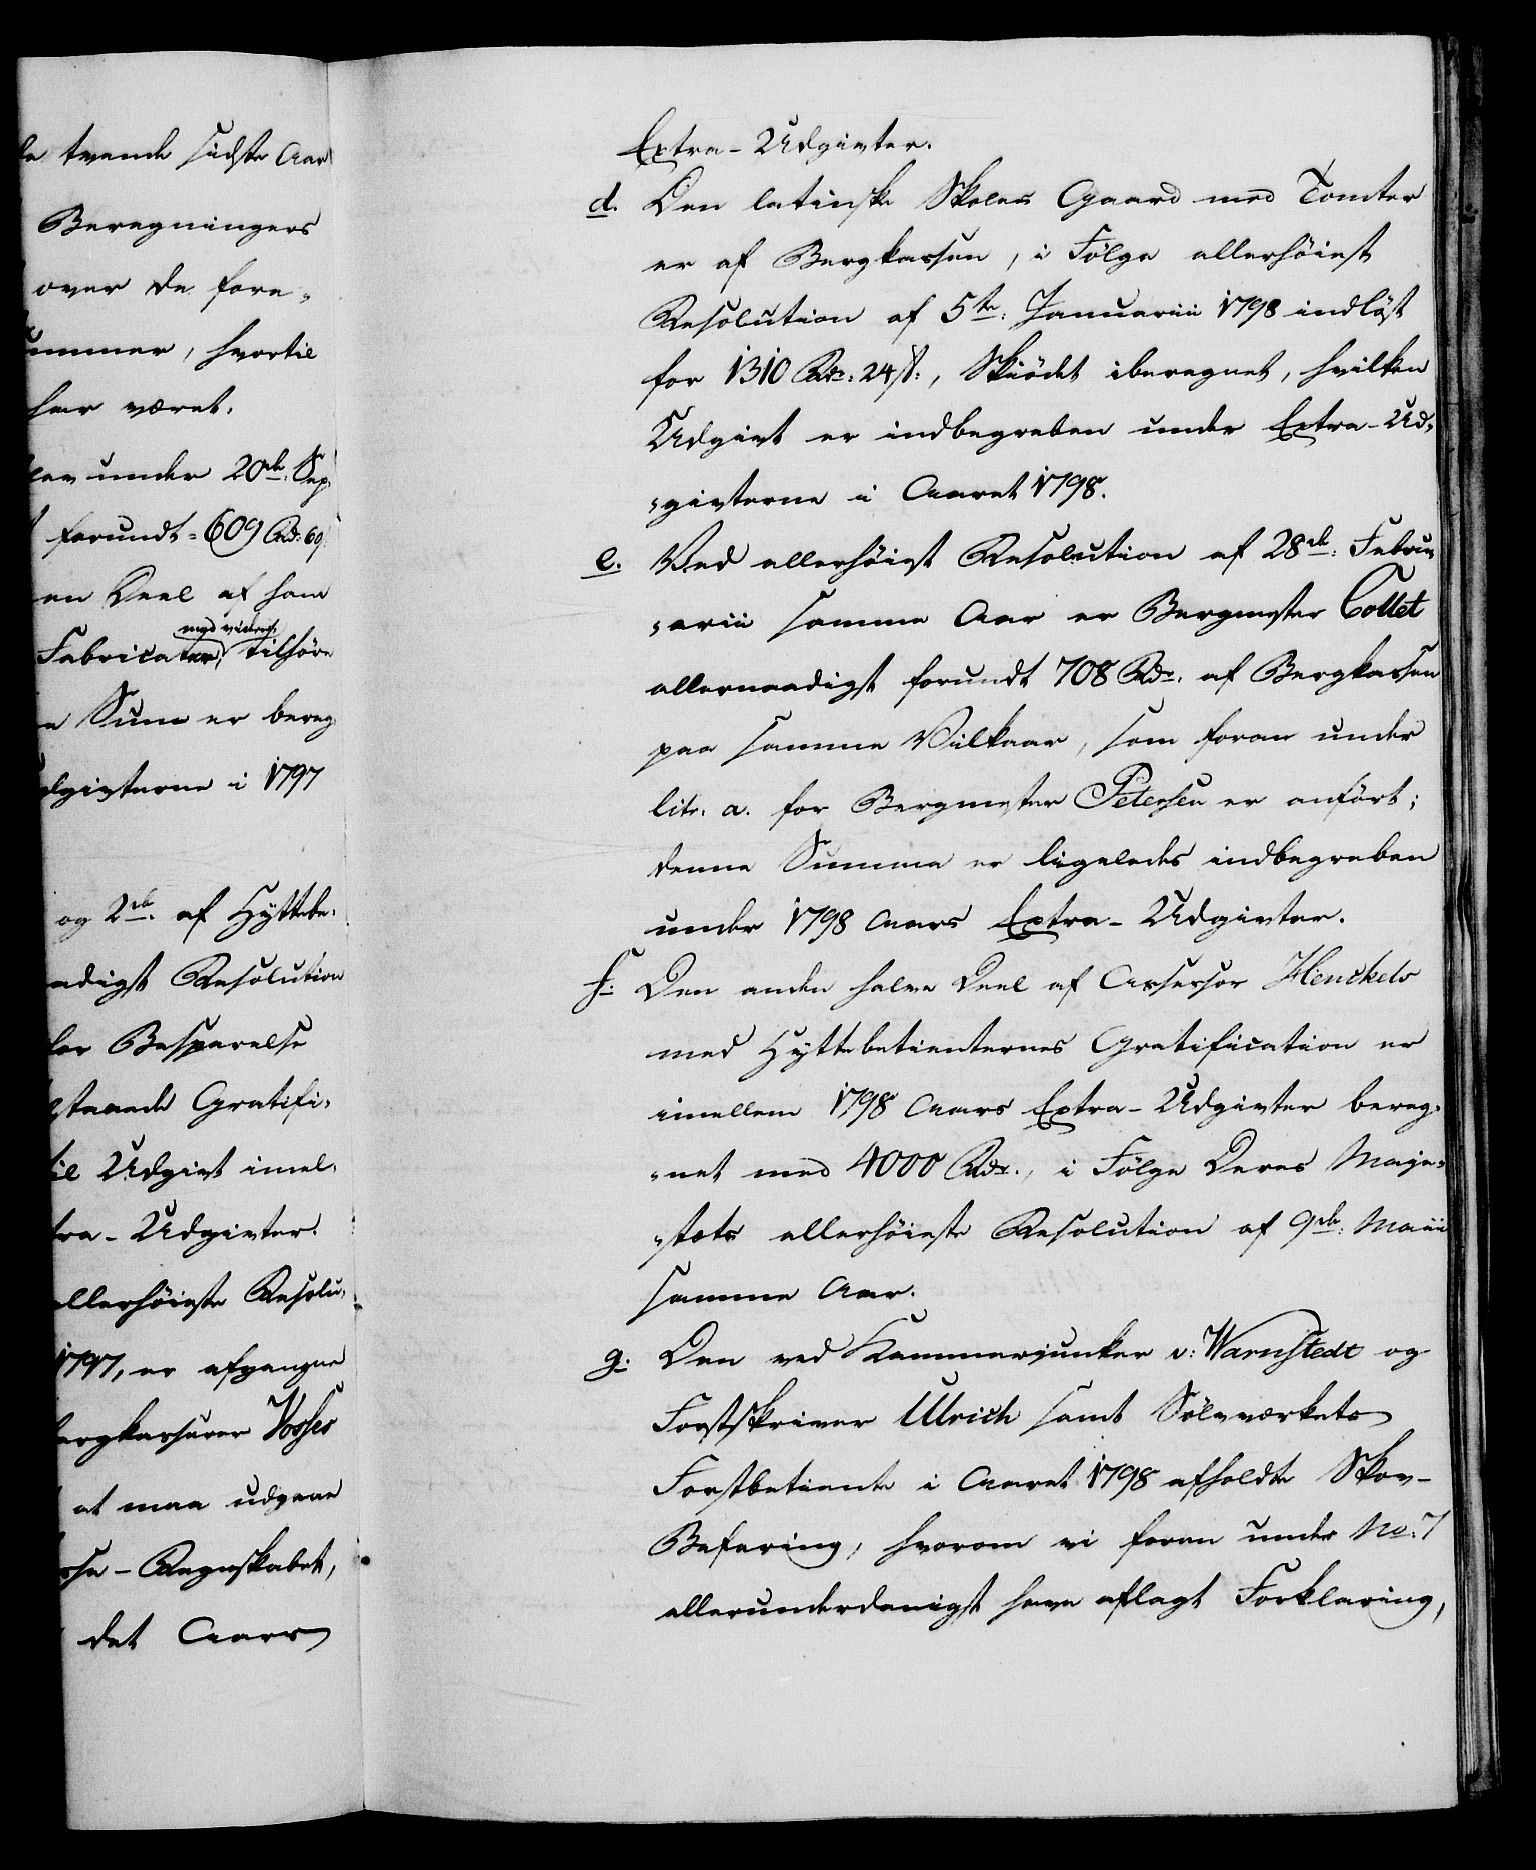 de tvende sidste Aar
Beregningers
over de fore-
ummer, hvortil
har været.
lev under 20de Sep
forundt 609 Rd: 69
en Deel af hans
med videre,
Fabricater, tilhöre
e Sum er bereg
dgivterne i 1797
og 2de af Hyttebe-
adigst Resolution
for Besparelse
staaende Gratifi-
til Udgivt imel-
tra-Udgivter.
allerhöieste Resolu-
1797, er afgangne
ergkasserer Vosses
at maa udgaae
sse-Regnskabet,
det Aars
Extra-Udgivter.
d. Den latinske Skoles Gaard med Tomter
er af Bergkassen, i Fölge allerhöiest
Resolution af 5te: Januarii 1798 indlöst
for 1310 Rdr: 24 ß:, Skiödet iberegnet, hvilken
Udgivt er indbegreben under Extra-Ud-
-givterne i Aaret 1798.
e. Ved allerhöiest Resolution af 28de: Febru-
-arii samme Aar er Bergmester Collet
allernaadigst forundt 708 Rdr. af Bergkassen
paa samme Vilkaar, som foran under
litr. a. for Bergmester Petersen er anfört;
denne Summa er ligeledes indbegreben
under 1798 Aars Extra-Udgivter.
f. Den anden halve Deel af Assessor Henckels
med Hyttebetienternes Gratification er
imellem 1798 Aars Extra-Udgivter bereg-
-net med 4000 Rdr., i Fölge Deres Maje-
-stæts allerhöieste Resolution af 9de: Maii
samme Aar.
g. Den ved Kammerjunker v: Warnstedt og
Forstskriver Ulrich samt Sölvværkets
Forstbetiente i Aaret 1798 afholdte Skov-
Befaring, hvorom vi foran under No: 7
allerunderdanigst have aflagt Forklaring,